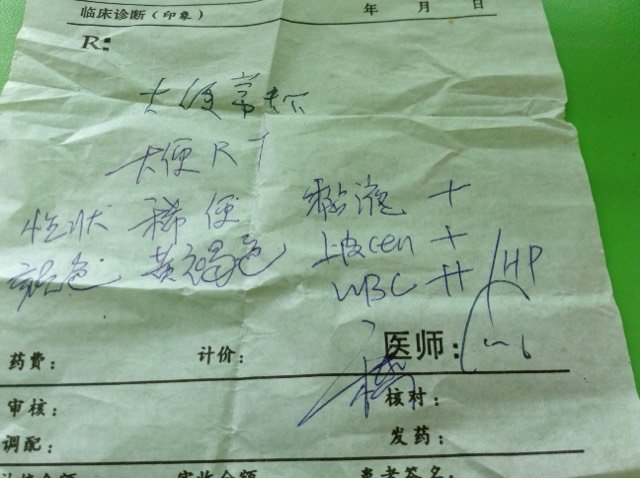 临床诊断（印象） 年 月 日
R:
大便常规
大便RT
性状 稀便 黏液 +
颜色 黄褐色 上皮cell +
WBC ++ /HP
药费： 计价： 医师：
审核： 核对：
调配： 发药：
实收金额 患者签名：